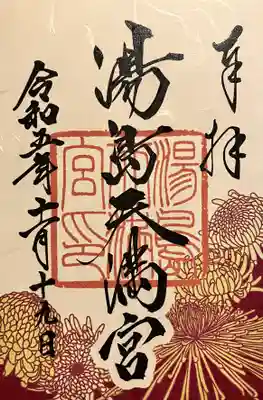 奉拝
湯島天満宮
湯島天満宮印
令和五年十一月十九日